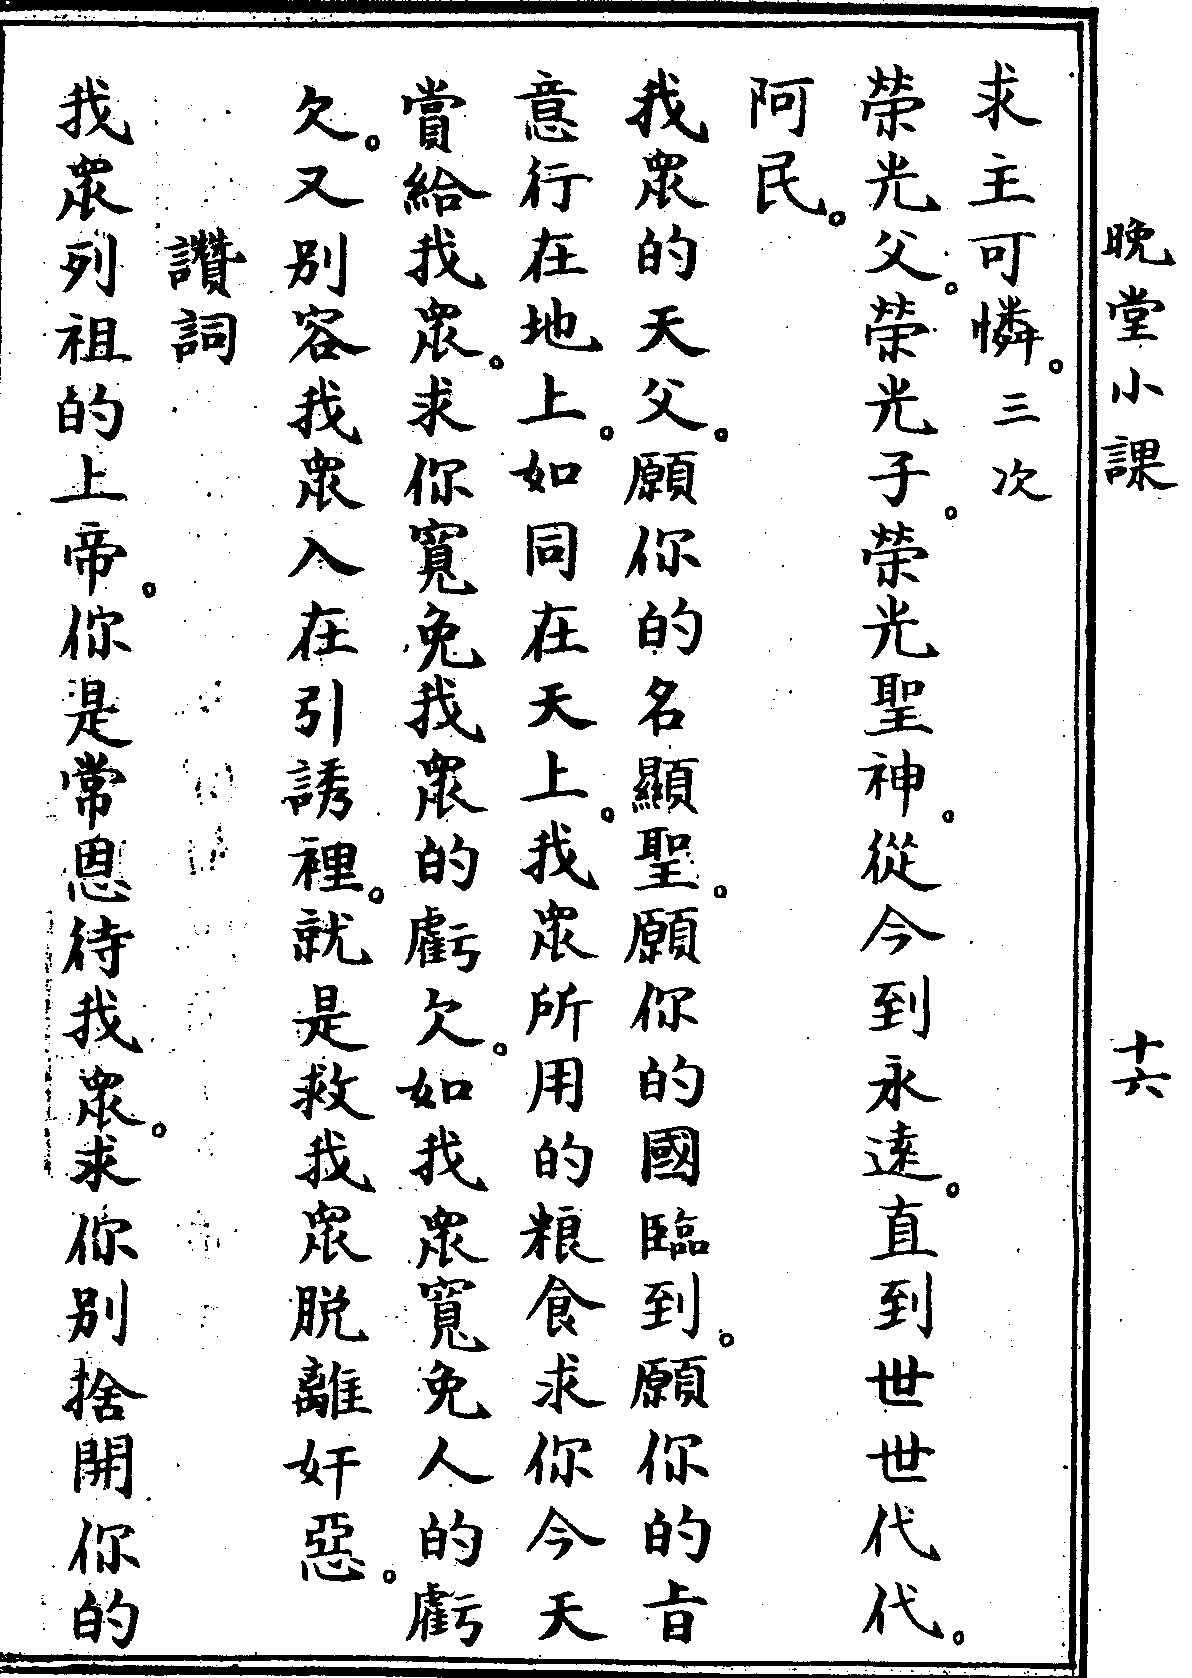 晚堂小課 十六
求主可憐。三次
榮光父。榮光子。榮光聖神。從今到永遠。直到世世代代。
阿民。
我眾的天父。願你的名顯聖。願你的國臨到。願你的旨
意行在地上。如同在天上。我眾所用的粮食求你今天
賞給我眾。求你寬免我眾的虧欠。如我眾寬免人的虧
欠。又別容我眾入在引誘裡。就是救我眾脫離奸惡。
讚詞
我眾列祖的上帝。你是常恩待我眾。求你別捨開你的